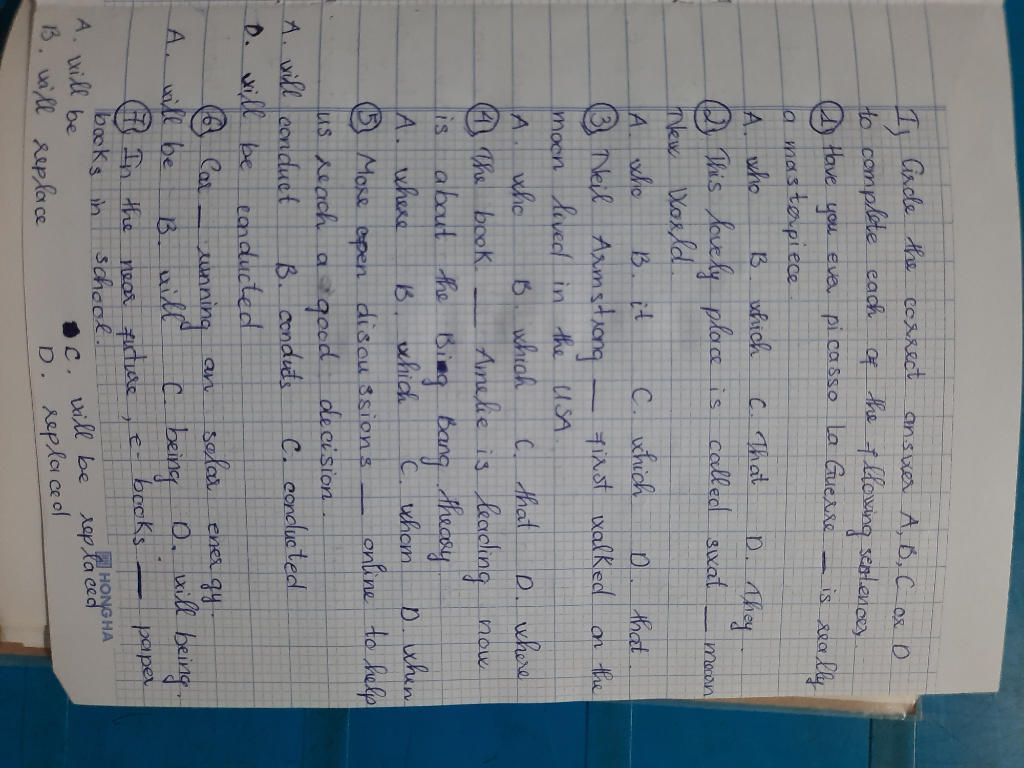 I, Circle the correct answer A, B, C or D
to complete each of the following sentences,
① Have you ever picasso La Guerre __ is really
a masterpiece.
A. who B. which C. That D. They
② This lovely place is called swat __ mean
New World.
A. who B. it C. which D. that.
③ Neil Armstrong __ first walked on the
moon lived in the USA.
A. who B. which C. that D. where
④ The book __ Amelie is leading now
is about the Bing Bang theory
A. where B. which C. whom D. when
⑤ More open discussions __ online to help
us reach a good decision.
A. will conduct B. conduts C. conducted
D. will be conducted
⑥ Car __ running an solar energy.
A. will be B. will C being D. will being.
⑦ In the near future, e-books __ paper
books in school.
A. will be C. will be replaced
B. will replace D. replaced
HONGHA